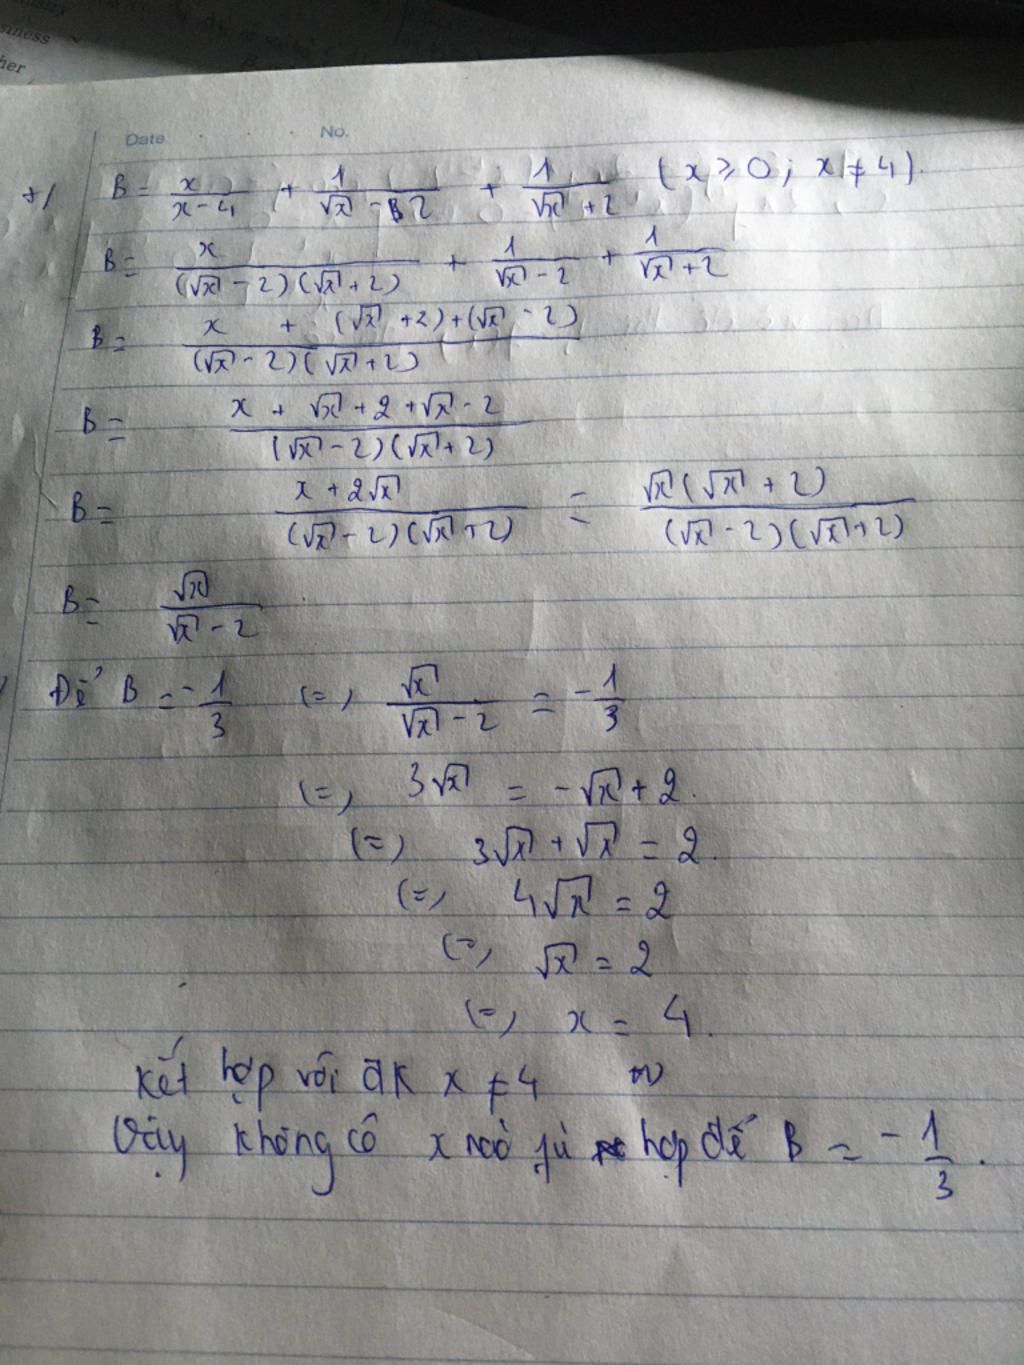 istry
siness
her
Date No.
+/ B = x/(x-4) + 1/(√x - 2) + 1/(√x + 2) (x ≥ 0; x ≠ 4).
B = x/((√x - 2)(√x + 2)) + 1/(√x - 2) + 1/(√x + 2)
B = (x + (√x + 2) + (√x - 2))/((√x - 2)(√x + 2))
B = (x + √x + 2 + √x - 2)/((√x - 2)(√x + 2))
B = (x + 2√x)/((√x - 2)(√x + 2)) = (√x(√x + 2))/((√x - 2)(√x + 2))
B = √x/(√x - 2)
Để B = -1/3 (=) √x/(√x - 2) = -1/3
(=) 3√x = -√x + 2.
(=) 3√x + √x = 2.
(=) 4√x = 2
(=) √x = 2
(=) x = 4.
Kết hợp với đk x ≠ 4
Vậy không có x nào hợp để B = -1/3.